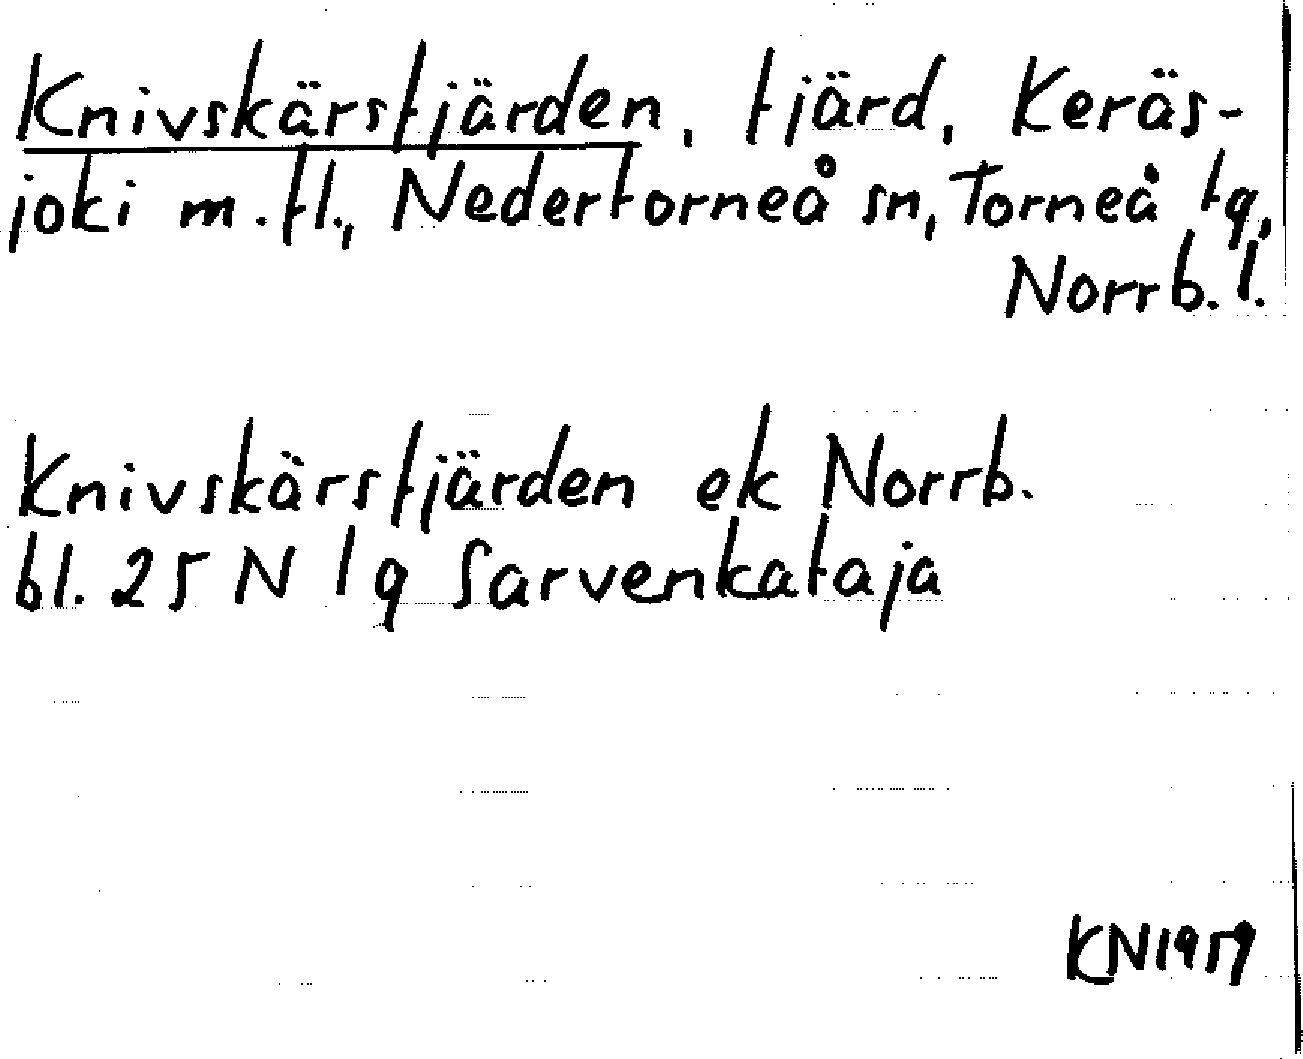 Knivskärsfjärden, fjärd, Keräs-
joki m.fl., Nedertorneå sn, Torneå tg,
Norrb. l.
Knivskärsfjärden ek Norrb.
bl. 25 N lg Sarvenkataja
KN1959